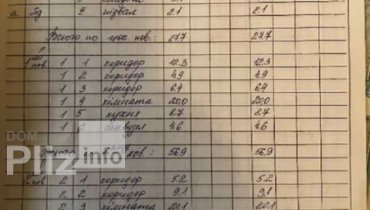 а Iд 2 підвал 2.1 2.1
Всього по цок. пов: 27.7 27.7
1 1 коридор 12.3 12.3
пов 1 2 коридор 4.9 4.9
1 3 коридор 6.4 6.4
1 4 кімната 20.0 20.0
1 5 кухня 8.7 8.7
1 6 санвузол 4.6 4.6
пов: 56.9 56.9
2 1 коридор 5.2 5.2
пов 2 2 коридор 9.1 9.1
2 3 кімната 20.1 20.1
DOM
Pliz info